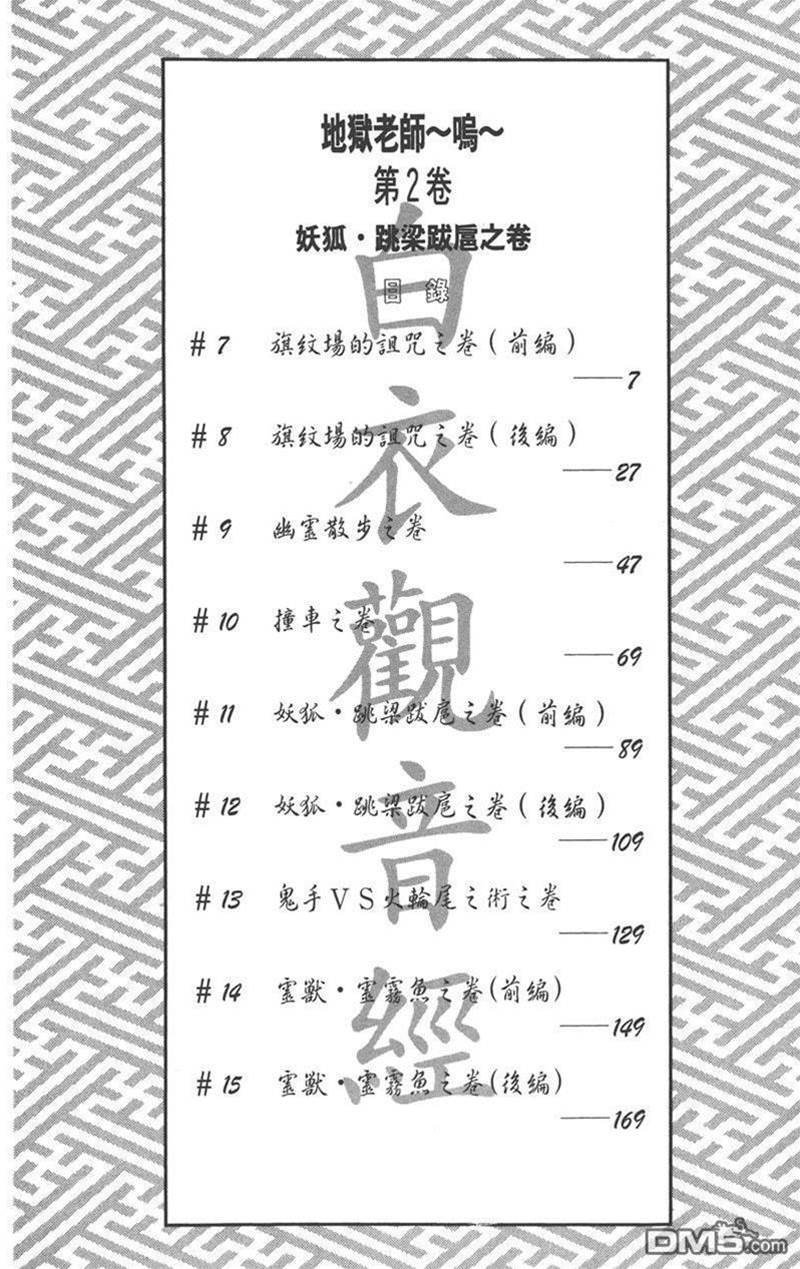 地獄老師～嗚～
第2卷
妖狐・跳梁跋扈之卷
目 錄
#7 旗纹場的詛咒之卷(前編)
——7
#8 旗纹場的詛咒之卷(後編)
——27
#9 幽霊散步之卷
——47
#10 撞車之卷
——69
#11 妖狐・跳梁跋扈之卷(前編)
——89
#12 妖狐・跳梁跋扈之卷(後編)
——109
#13 鬼手VS火輪尾之術之卷
——129
#14 霊獸・霊霧魚之卷(前編)
——149
#15 霊獸・霊霧魚之卷(後編)
——169
白衣觀音經
DM5.com